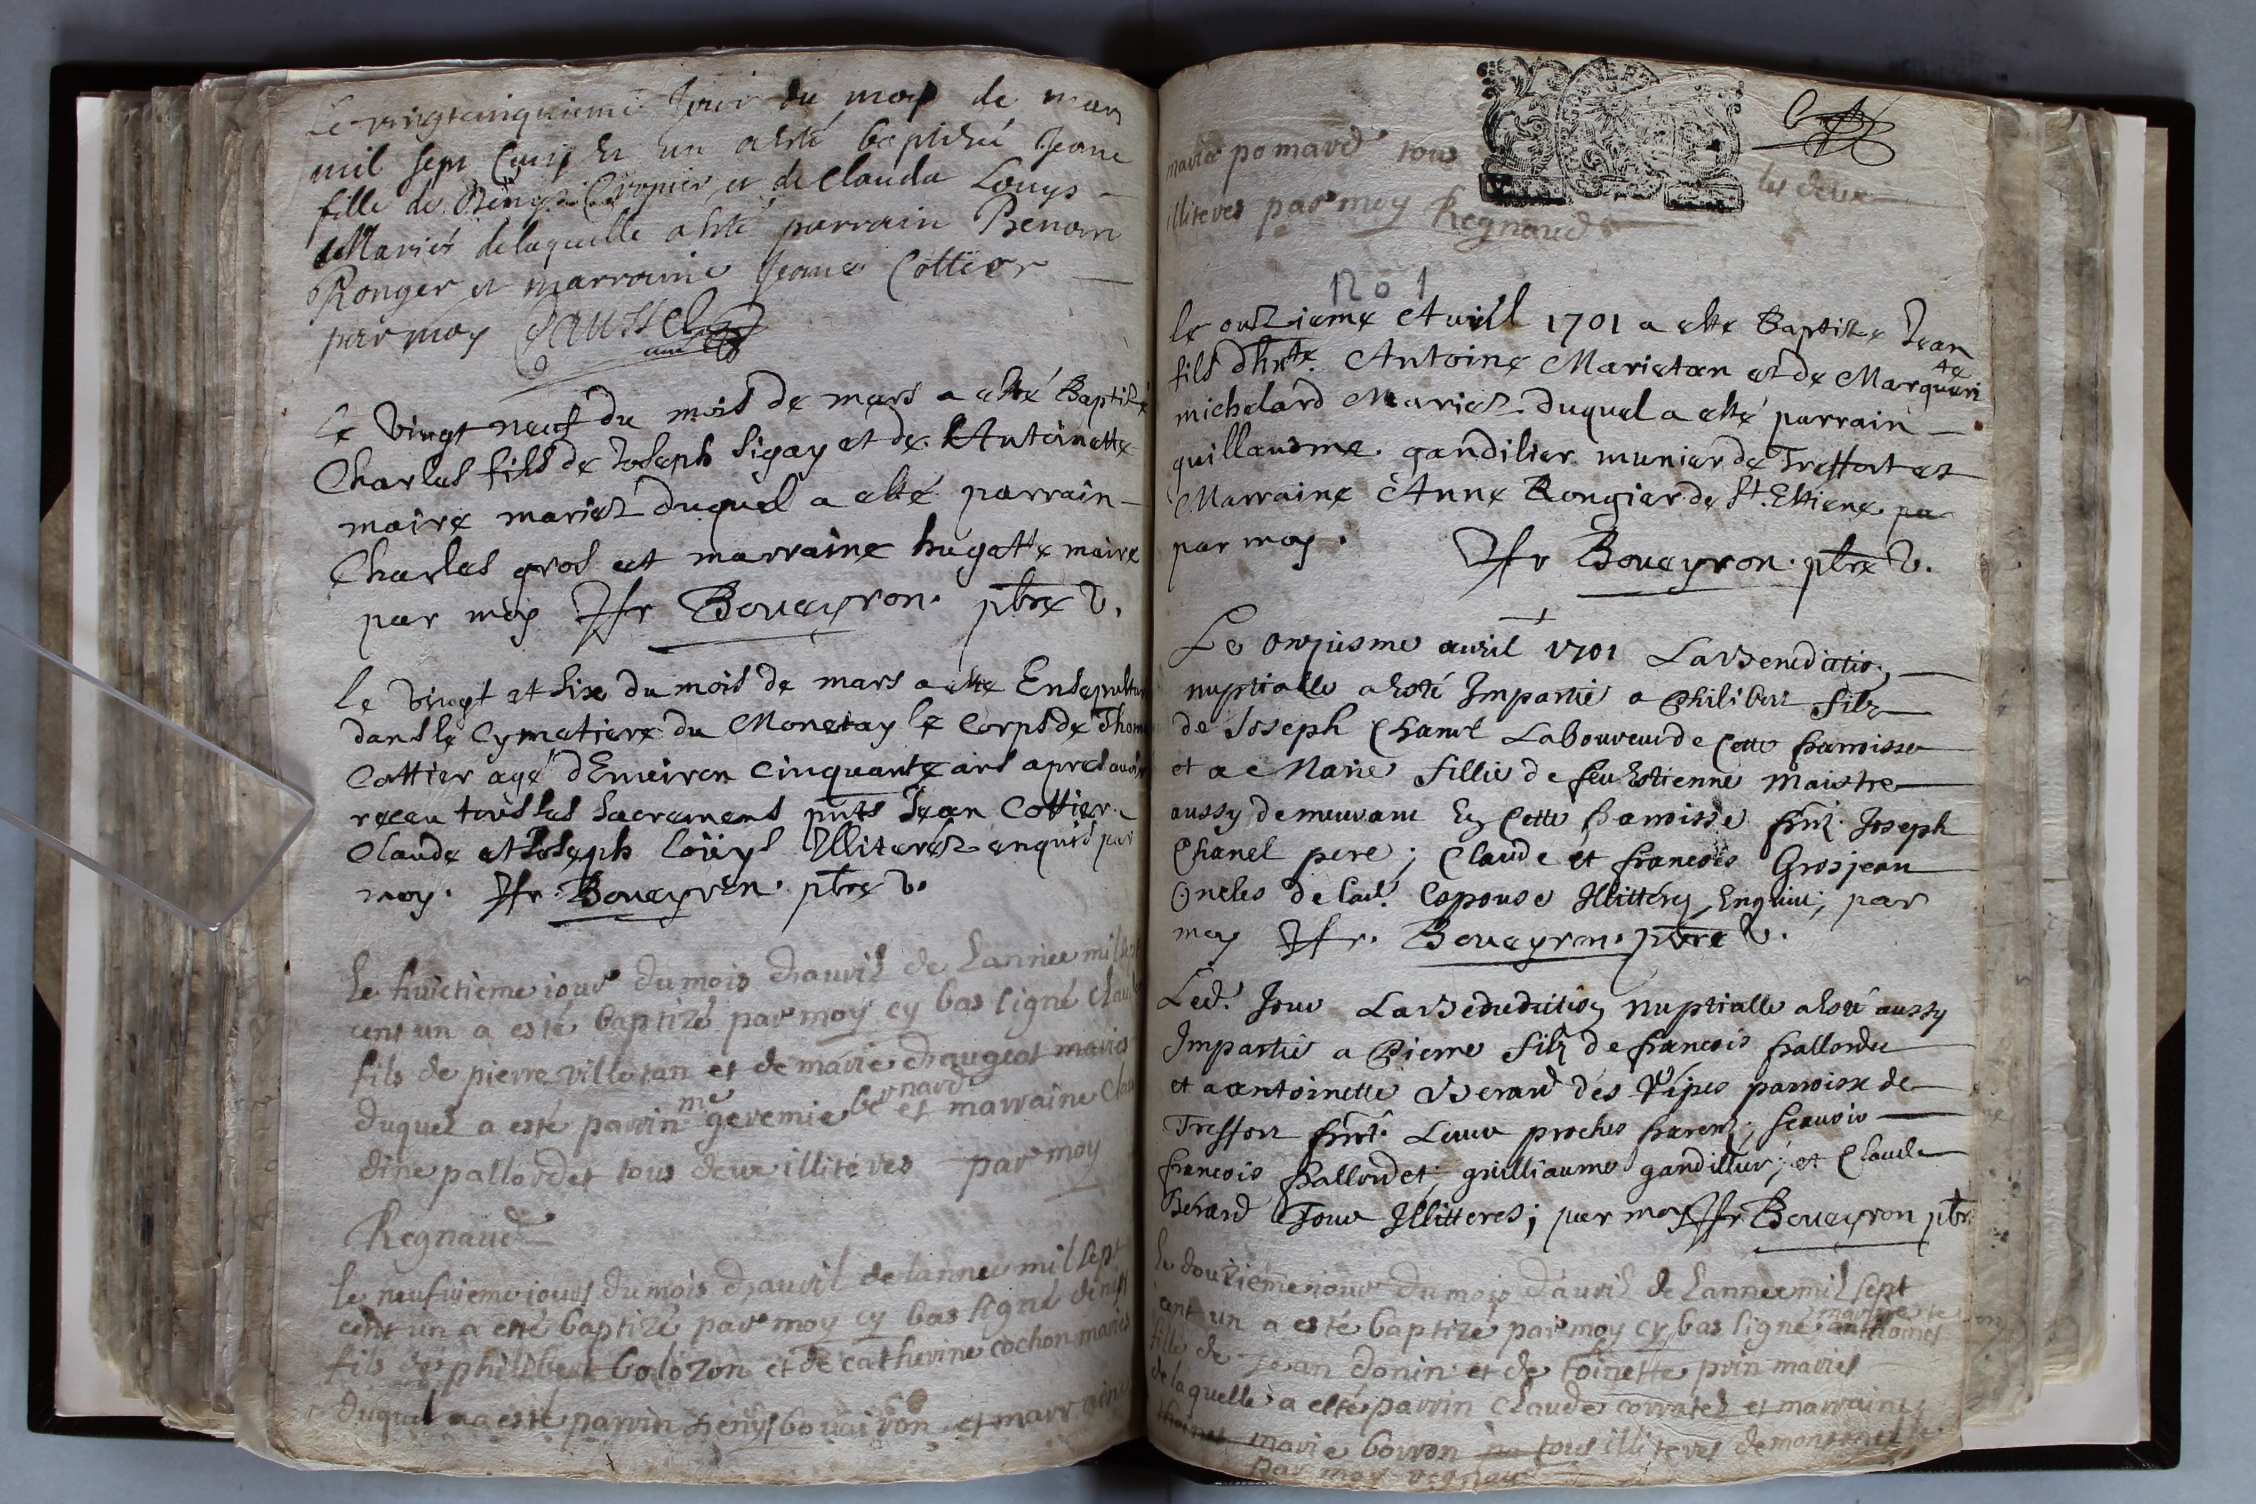 Le vingtcinquieme Jour du moy de mars
mil sept Cens Et un a esté baptisée Jeane
fille de Denys et de Clauda Louys
Mariés delaquelle a esté parrain Benoin
Ronger et marraine Jeane Cottier
par moy Jaussel
Le vingt neuf du mois de mars a esté Baptisé
Charles fils de Joseph Sigay et de Antoinette
maire mariez duquel a esté parrain
Charles gros et marraine hugatte maire
par moy Jfr Boueyron. pbre v.
Le vingt et six du mois de mars a esté Ensepultur
dans le Cymetiere du Monetay le Corps de Thom
Cottier agé d'Enuiron Cinquante ans apres auoir
receu tous les Sacremens pnts Jean Cottier
Claude et Joseph Loüys Illiterez enquis par
moy. Jfr. Boueyron. pbre v.
Le huictieme iour du mois d'auril de Lannee mil sept
cent un a esté baptizé par moy cy bas signé Clau
fils de pierre villetan et de marie chaugeat mariés
duquel a esté parrin me geremie bernard et marraine Clau
dine pallordet tous deux illiteres par moy
Regnaud
Le neufvieme iour du mois d'auril de lannee mil sept
cent un a esté baptizé par moy cy bas signé denys
fils de philibert bolozon et de catherine cochon mariés
duquel a esté parrin denys bouairon et marraine
marie pomard tous les deux
illiteres par moy Regnaud
1701
Le onzieme Auril 1701 a esté Baptizé Jean
fils d'hnte. Antoine Marietan et de Marguerite
michelard Mariez duquel a esté parrain
guillaume gandilier munier de Treffort et
Marraine Anne Rongier de St. Estiene pa
par moy. Jfr Boueyron. pbre v.
Le Onzjesme auril 1701 La Benediction
nuptialle a Esté Impartie a Philibert filz
de Joseph Chanel Laboureur de Cette Parroisse
et a Marie fillie de feu Estienne Maistre
aussy demeurant En Cette Parroisse Pnt. Joseph
Chanel pere; Claude et francois Grosjean
Oncles de lad. Espouse Illitterez, Enquis; par
moy Jfr. Boueyron. pbre v.
Led. Jour La Benediction Nuptialle a Esté aussy
Impartie a Pierre filz de francois Pallordet
et a antoinette Berard des Vépes parroisse de
Treffort Pnt. Leurs proches Parens; scauoir
francois Pallordet; guilliaume gandillier; et Claude
Berard Tous Illitteres; par moy Jfr Boueyron pbr
Le douzieme iour du mois d'auril de Lannee mil sept
cent un a esté baptizé par moy cy bas signé
fille de Jean donin et de toinette prin mariés
de laquelle a esté parrin Claude corratel et marraine
marie borron tous illiteres de
par moy regnaud